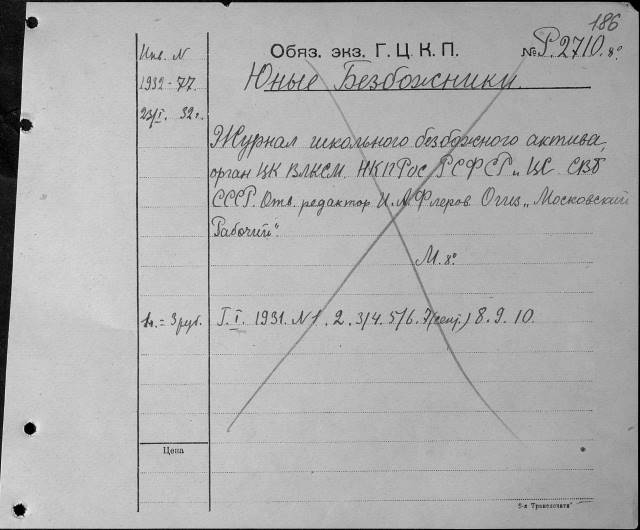 186
Инв. N
Обяз. экз. Г.Ц.К.П.
№ Р.2710. 8º
1932 - 77.
Юные Безбожники.
23/I. 32г.
Журнал школьного безбожного актива,
орган ЦК ВЛКСМ. НКПРос РСФСР и ЦС. СВБ
СССР. Отв. редактор И. А. Флеров. Огиз „Московский
Рабочий".
М. 8º
1г. = 3 руб.
Г. I. 1931. N 1. 2. 3/4. 5/6. 7(сент.) 8. 9. 10.
Цена
5-я Транспечати"